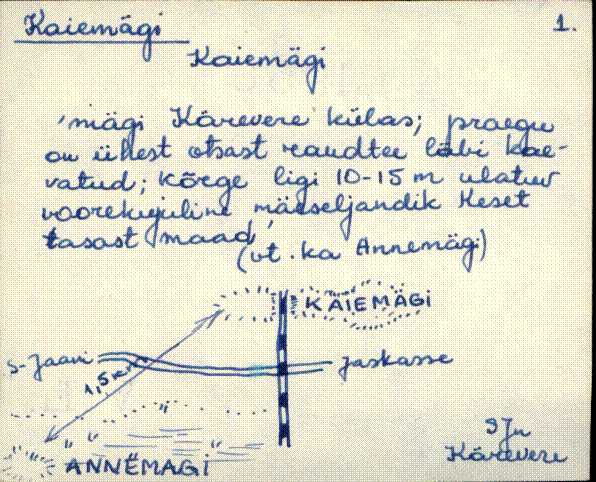 Kaiemägi
1.
Kaiemägi
'mägi Kärevere külas; praegu
on ühest otsast raudtee läbi kae-
vatud; kõrge ligi 10-15 m ulatuv
voorekujuline mäeseljandik keset
tasast maad'
(vt. ka Annemägi)
KAIEMÄGI
S-Jaani
Jaskasse
1,5 km
SJn
Kärevere
ANNEMÄGI